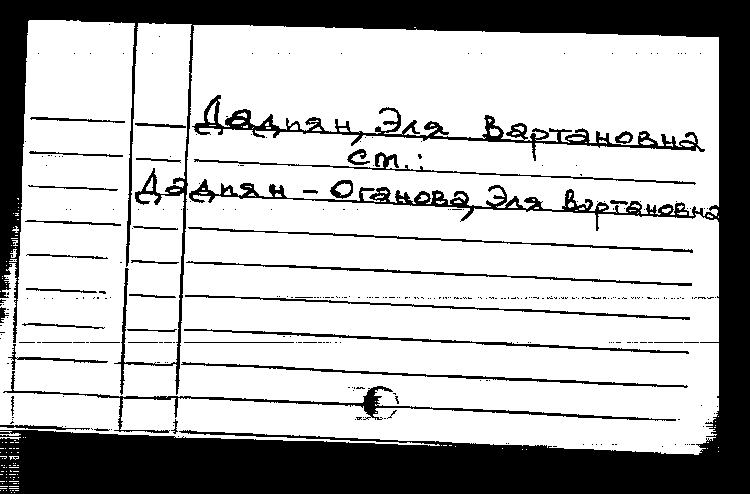 Дадпян, Эля Вартановна
ст.:
Дадпян - Оганова, Эля Вартановна